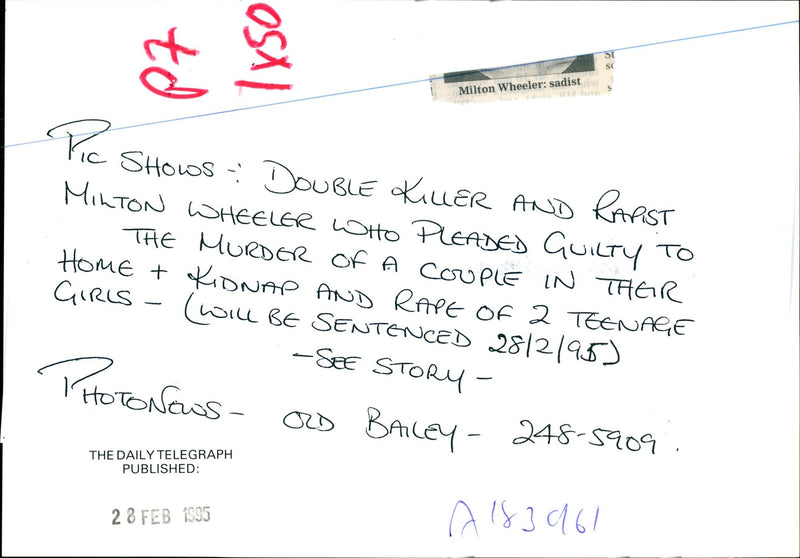 P7
1x50
Milton Wheeler: sadist
PIC SHOWS -: DOUBLE KILLER AND RAPIST
MILTON WHEELER WHO PLEADED GUILTY TO
THE MURDER OF A COUPLE IN THEIR
HOME + KIDNAP AND RAPE OF 2 TEENAGE
GIRLS - (WILL BE SENTENCED 28/2/95)
- SEE STORY -
PHOTONEWS - OLD BAILEY - 248-5909.
THE DAILY TELEGRAPH
PUBLISHED:
28 FEB 1995
A183961